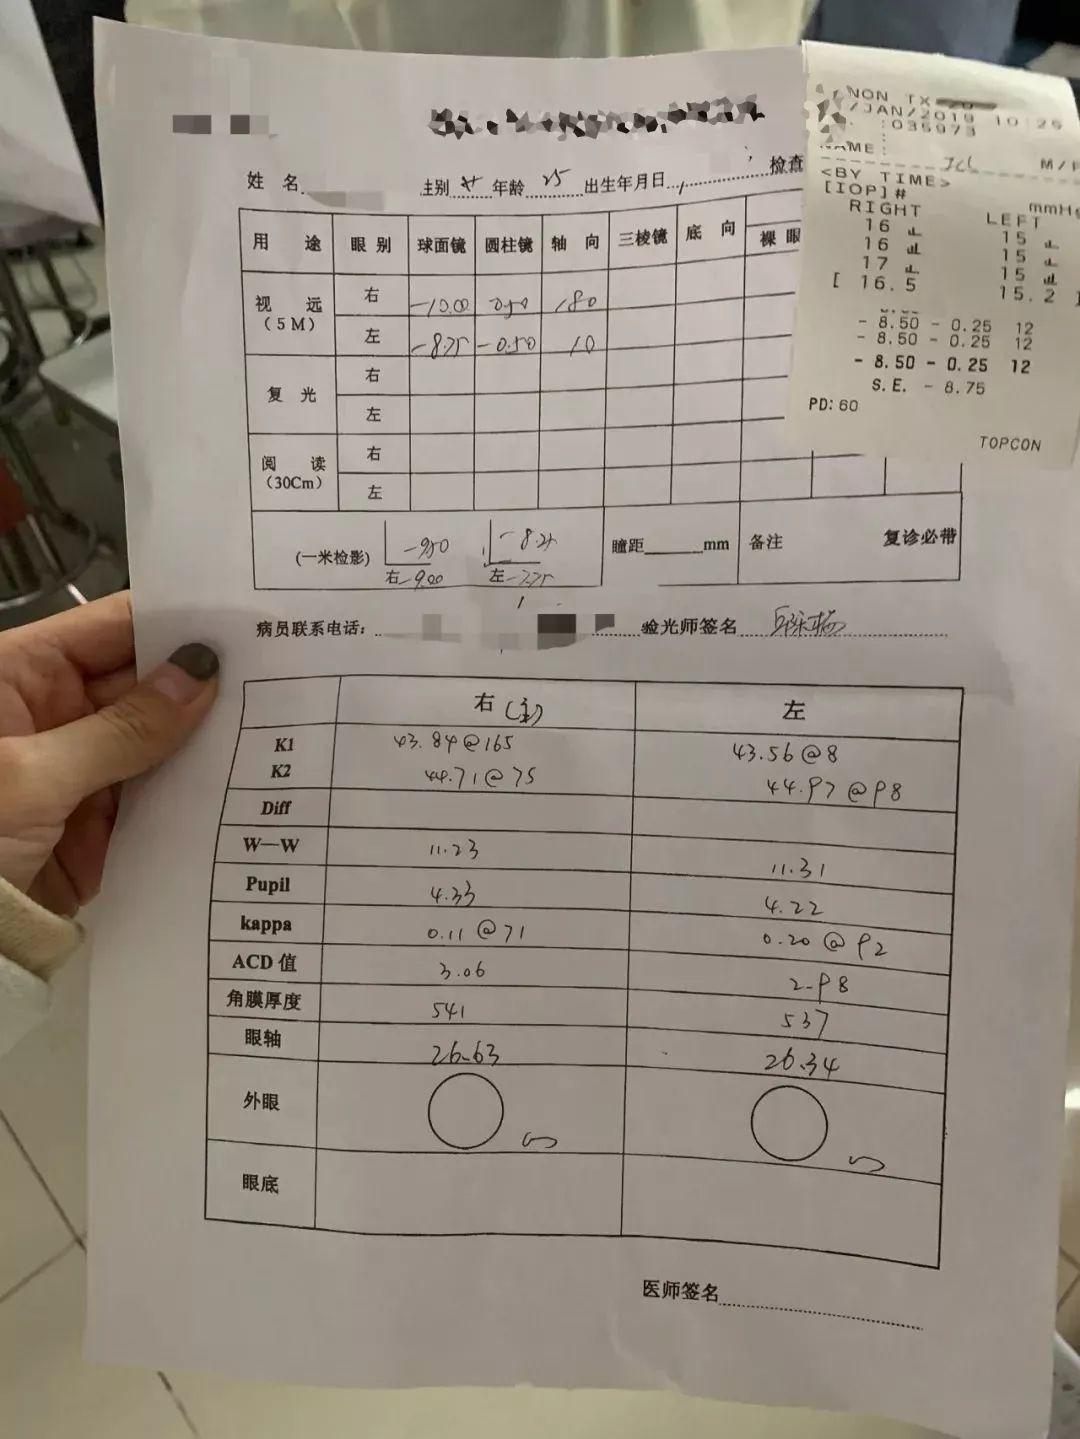 NON TX
/JAN/2019 10:25
:035973
NAME: M/F
<BY TIME>
[IOP]# mmHg
RIGHT LEFT
16 15
16 15
17 15
[ 16.5 15.2 ]
- 8.50 - 0.25 12
- 8.50 - 0.25 12
- 8.50 - 0.25 12
S.E. - 8.75
PD: 60
TOPCON
姓 名 性别 女 年龄 25 出生年月日 检查
用 途 眼 别 球面镜 圆柱镜 轴 向 三棱镜 底 向 裸 眼
视 远 (5M) 右 -10.00 0.50 180
左 -8.75 -0.50 10
复 光 右
左
阅 读 (30Cm) 右
左
(一米检影) -9.50 -8.25
右 -9.00 左 -7.75
瞳距 mm 备注 复诊必带
病员联系电话: 验光师签名
右(主) 左
K1 43.84@165 43.56@8
K2 44.71@75 44.97@98
Diff
W—W 11.23 11.31
Pupil 4.33 4.22
kappa 0.11@71 0.20@92
ACD值 3.06 2.98
角膜厚度 541 537
眼轴 26.63 26.34
外眼
眼底
医师签名